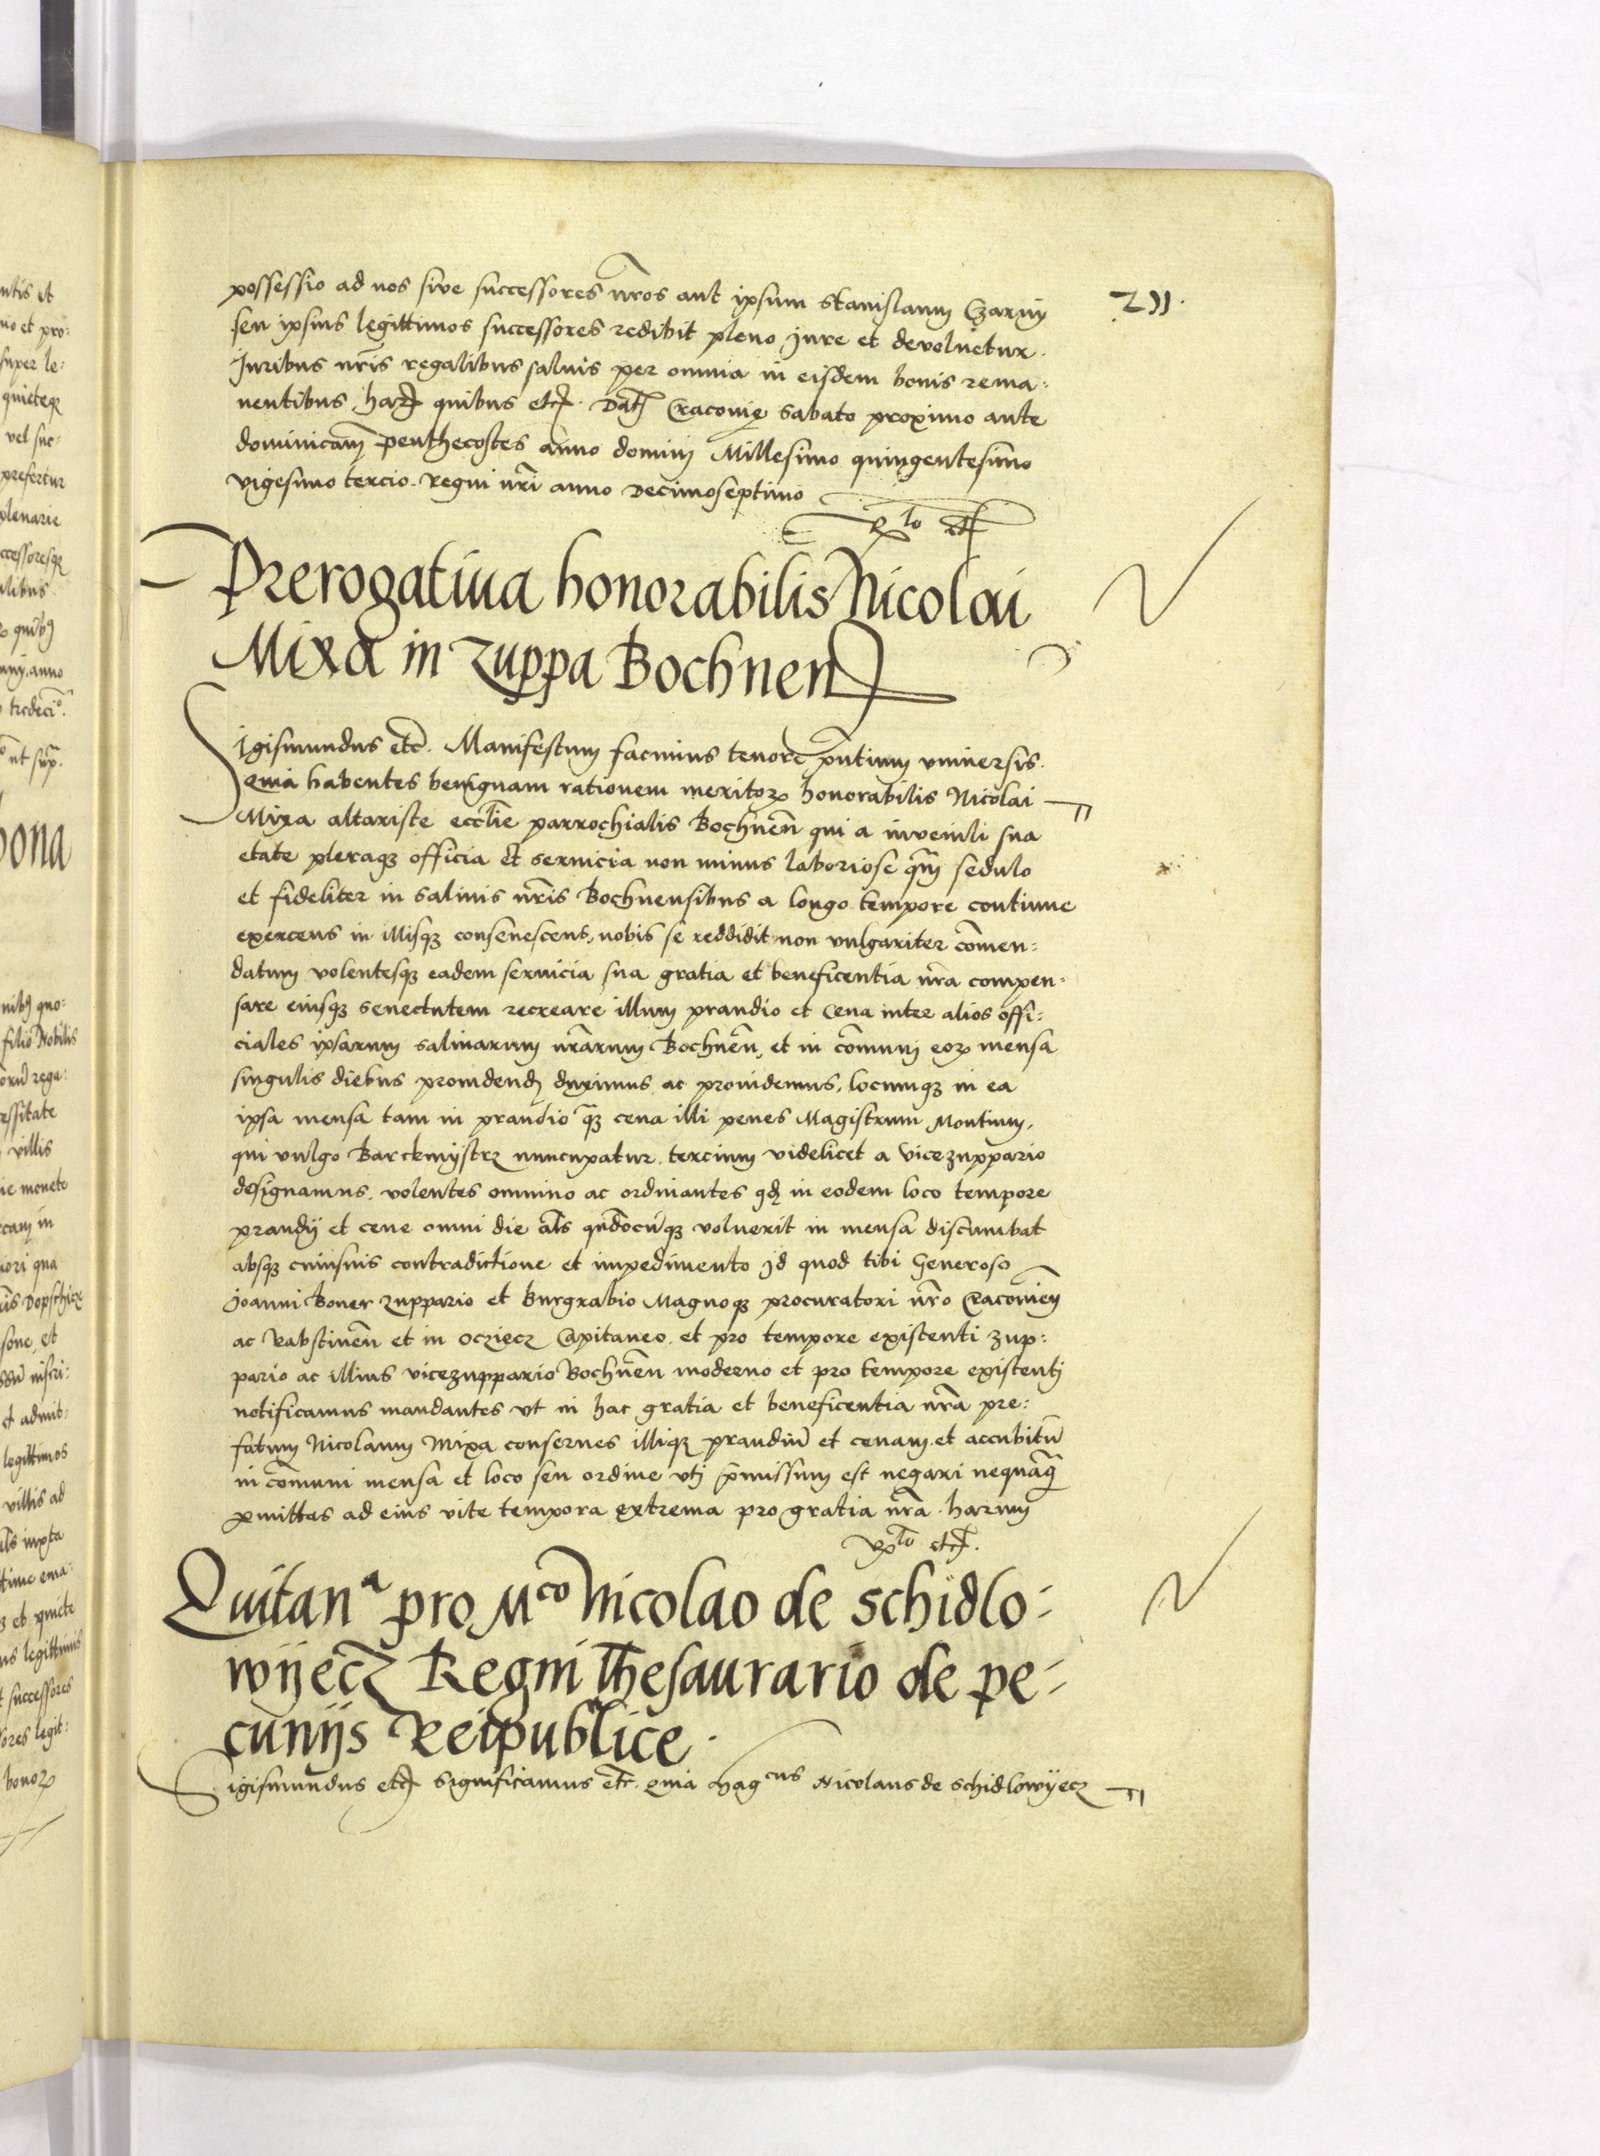 possessio ad nos sive successores nr̃os aut ipsum Stanislaum Czarnÿ
211.
seu ipsius legittimos successores redibit pleno jure et devoluetur.
Juribus nr̃is regalibus saluis per omnia in eisdem bonis rema:
nentibus. har̃ quibus etc̃. Dat̃ Cracouię Sabato proximo ante
dominicam̃ penthecostes anno dominj Millesimo quingentesimo
vigesimo tercio. Regni nr̃i anno Decimoseptimo
Rᵗᵒ etc̃
Prerogatiua honorabilis Nicolai
Mixa in zuppa Bochnen̄
Sigismundus etc̃. Manifestum facimus tenore pñtium vniuersis.
quia habentes benignam rationem meritoꝝ honorabilis Nicolai
Mixa altariste eccl̃ie parrochialis Bochnen̄ qui a inuenili sua
etate pleraqꝫ officia et seruicia non minus laboriose qm̃ sedulo
et fideliter in salinis nr̃is Bochnensibus a longo tempore continue
exercens in illisqꝫ consenescens, nobis se reddidit non vulgariter com̄en:
datum volentesqꝫ eadem seruicia sua gratia et beneficentia nr̃a compen:
sare eiusqꝫ senectutem recreare illum prandio et cena inter alios offi:
ciales ipsarum salinarum nr̃arum Bochnen̄, et in com̄uni eoꝝ mensa
singulis diebus prouidendũ duximus ac prouidemus, locumqꝫ in ea
ipsa mensa tam in prandio qꝫ̃ cena illi penes Magistrum Montium,
qui vulgo Barckmÿstrz nuncupatur, tercium videlicet a vicezuppario
designamus, volentes omnino ac ordinantes qđ in eodem loco tempore
prandij et cene omni die al̃s qñdocũqꝫ voluerit in mensa discumbat
absqꝫ cuiusuis contradictione et impedimento Id quod tibi Generoso
Joanni Boner zuppario et Burgrabio Magnoqꝫ procuratori nr̃o Cracouien̄
ac Rabstinen̄ et in Oczięcz Capitaneo. et pro tempore existenti zup:
pario ac illius vicezuppario Bochnen̄ moderno et pro tempore existentj
notificamus mandantes vt in hac gratia et beneficentia nr̃a pre:
fatum Nicolaum Mixa conserues illiqꝫ prandiũ et cenam et accubitũ
in com̄uni mensa et loco seu ordine vtj p̃missum est negari nequaq̃
ꝑmittas ad eius vite tempora extrema pro gratia nr̃a. harum
Rᵗᵒ etc̃.
Quitanᵃ pro Mᶜᵒ Nicolao de Schidlo:
wÿecz Regni Thesaurario de pe:
cunijs Reipublice.
Sigismundus etc̃ Significamus etc̃. quia Magᶜᵘˢ Nicolaus de Schidlowÿecz